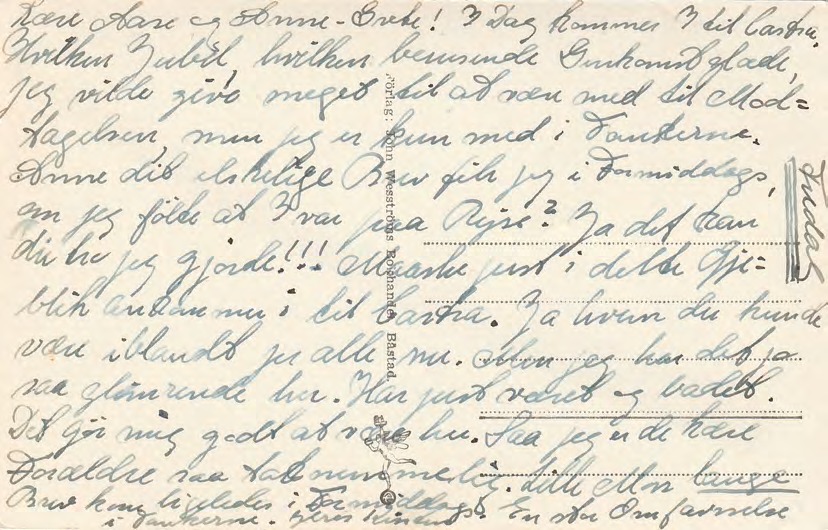 Kære Aase og Anne-Grete! I Dag kommer I til Castra.
Hvilken Jubel, hvilken berusende Genkomstglæde,
jeg vilde give meget til at være med til Mod=
tagelsen, men jeg er kun med i Tankerne.
Anne dit elskelige Brev fik jeg i Formiddags,
om jeg følte at I var paa Rejse? Ja det kan
du tro jeg gjorde!!! Maaske just i dette Øje=
blik ankommer I til Castra. Ja hvem der kunde
være iblandt jer alle nu. Men jeg har det jo
saa glimrende her. Har just været og badet.
Det gör mig godt at være her. Saa jeg er de kære
Forældre saa taknemmelig. Lille Mor lange
Brev kom ligeledes i Formiddags. En stor Omfavnelse
i Tankerne. Jeres
Fredag
Förlag: John Wesströms Bokhandel, Båstad.